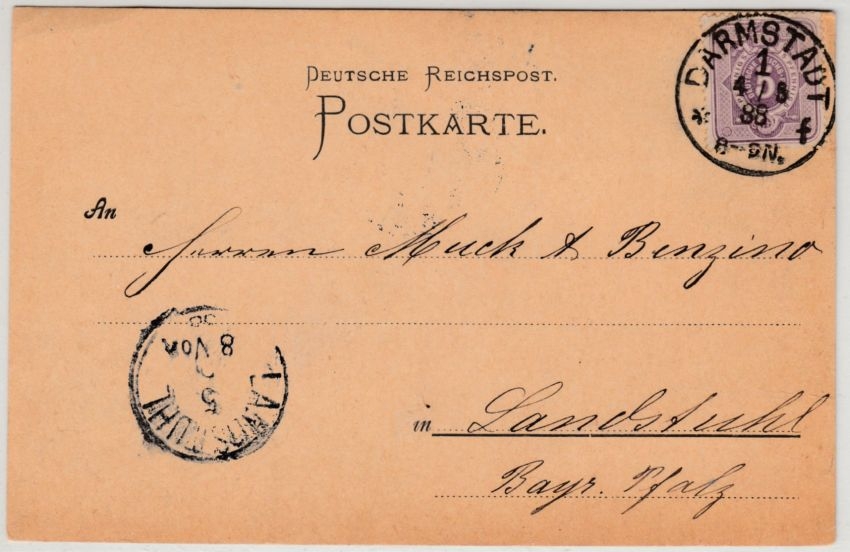 DEUTSCHE REICHSPOST.
POSTKARTE.
DARMSTADT
1
4 / 8
88
8-9N.
* f
An Herren Muck & Benzino
in Landstuhl
Bayr. Pfalz
LANDSTUHL
5
8 VOR
88